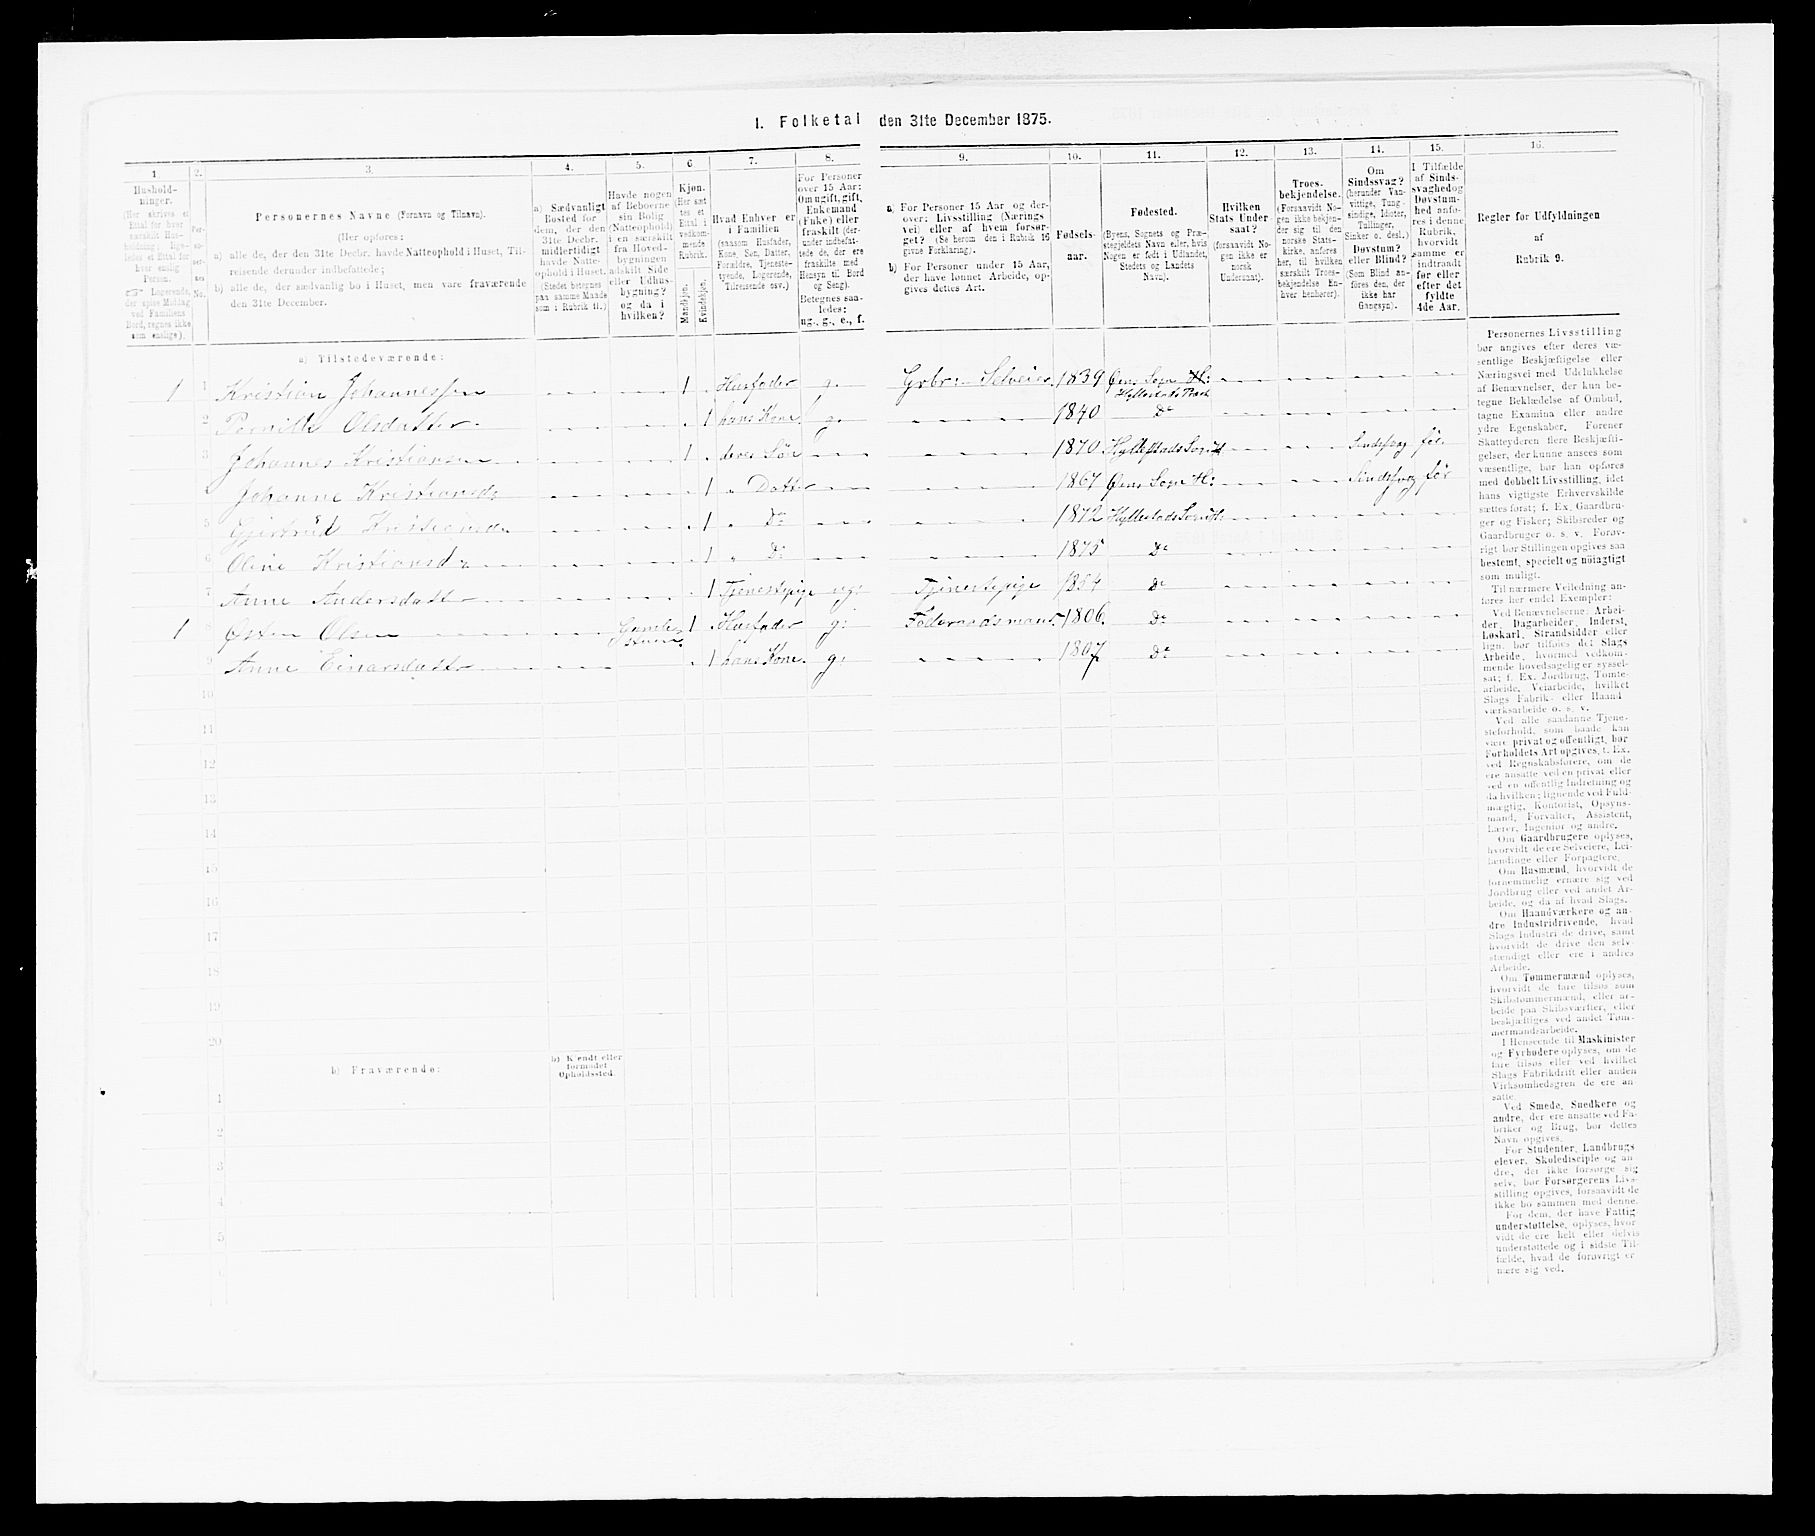 1. Folketal den 31te December 1875.
1 2. 3. 4. 5. 6. 7. 8. 9. 10. 11. 12. 13. 14. 15. 16.
Hushold-
ninger.
(Her skrives et
Ettal for hver
særskilt Hus-
holdning; lige-
ledes et Ettal for
hver enslig
Person.
Logerende,
der spise Middag
ved Familiens
Bord, regnes ikke
som enslige).
Per-
so-
ner-
nes
No.
Personernes Navne (Fornavn og Tilnavn).
(Her opføres:
a) alle de, der den 31te Decbr. havde Natteophold i Huset, Til-
reisende derunder indbefattede;
b) alle de, der sædvanlig bo i Huset, men vare fraværende
den 31te December.
a) Sædvanligt
Bosted for
dem, der den
31te Decbr.
midlertidigt
havde Natte-
ophold i Huset.
(Stedet betegnes
paa samme Maade
som i Rubrik 11.)
Havde nogen
af Beboerne
sin Bolig
(Natteophold)
i en særskilt
fra Hoved-
bygningen
adskilt Side
eller Udhus-
bygning?
og da i
hvilken?
Kjøn.
(Her sæt-
tes et
Ettal i
vedkom-
mende
Rubrik.
Mandkjøn.
Kvindekjøn.
Hvad Enhver er
i Familien
(saasom Husfader,
Kone, Søn, Datter,
Forældre, Tjeneste-
tyende, Logerende,
Tilreisende osv.)
For Personer
over 15 Aar:
Om ugift, gift,
Enkemand
(Enke) eller
fraskilt (der-
under indbefat-
tede de, der ere
fraskilte med
Hensyn til Bord
og Seng).
Betegnes saa-
ledes:
ug., g., e., f.
a) For Personer 15 Aar og der-
over: Livsstilling (Nærings-
vei) eller af hvem forsør-
get? (Se herom den i Rubrik 16
givne Forklaring).
b) For Personer under 15 Aar,
der have lønnet Arbeide, op-
gives dettes Art.
Fødsels-
aar.
Fødested.
(Byens, Sognets og Præ-
stegjeldets Navn eller, hvis
Nogen er født i Udlandet,
Stedets og Landets
Navn).
Hvilken
Stats Under-
saat?
(forsaavidt No-
gen ikke er
norsk
Undersaat).
Troes-
bekjendelse.
(Forsaavidt No-
gen ikke bekjen-
der sig til den
norske Stats-
kirke, anføres
her, til hvilken
særskilt Troes-
bekjendelse En-
hver henhører).
Om
Sindssvag?
(herunder Van-
vittige, Tung-
sindige, Idioter,
Tullinger,
Sinker o. desl.)
Døvstum?
eller Blind?
(Som Blind an-
føres den, der
ikke har
Gangsyn).
I Tilfælde
af Sinds-
svaghed og
Døvstum-
hed anfø-
res i denne
Rubrik,
hvorvidt
samme er
indtraadt
før eller
efter det
fyldte
4de Aar.
Regler for Udfyldningen
af
Rubrik 9.
a) Tilstedeværende:
1 1 Kristian Johannessen 1 Husfader g. Grbr: Selveier. 1839 Øens Sogn H: Hyllestads Præst
2 Pernille Olsdatter 1 hans Kone. g. 1840 Do
3 Johannes Kristiansen 1 deres Søn 1870 Hyllestads Sogn Sindssvag før.
Johanne Kristiansd: 1 " Datter 1867 Øens Sogn H: Sindssvag før
5 Gjertrud Kristiansd: 1 " Do 1872 Hyllestads Sogn
6 Oline Kristiansd: 1 " Do 1875 Do
7 Anne Andersdatter 1 Tjenestepige ug: Tjenestepige 1854 Do
1 8 Østen Olsen Gamle stuen 1 Husfader g: Føderaadsmand. 1806. Do
9 Anne Einarsdatter 1 hans Kone. g: 1807 Do
10
11
12
13
14
15
16
17
18
19
20
b) Fraværende:
b) Kjendt eller
formodet
Opholdssted.
1
2
3
4
5
Personernes Livsstilling
bør angives efter deres væ-
sentlige Beskjæftigelse eller
Næringsvei med Udelukkelse
af Benævnelser, der kun be-
tegne Beklædelse af Ombud,
tagne Examina eller andre
ydre Egenskaber. Forener
Skatteyderen flere Beskjæfti-
gelser, der kunne ansees som
væsentlige, bør han opføres
med dobbelt Livsstilling, idet
hans vigtigste Erhvervskilde
sættes først; f. Ex. Gaardbru-
ger og Fisker; Skibsreder og
Gaardbruger o. s. v. Forøv-
rigt bør Stillingen opgives saa
bestemt, specielt og nøiagtigt
som muligt.
Til nærmere Veiledning an-
føres her endel Exempler:
Ved Benævnelserne: Arbei-
der, Dagarbeider, Inderst,
Løskarl, Strandsidder eller
lign. bør tilføies det Slags
Arbeide, hvormed vedkom-
mende hovedsagelig er syssel-
sat; f. Ex. Jordbrug, Tomte-
arbeide, Veiarbeide, hvilket
Slags Fabrik- eller Haand-
værksarbeide o. s. v.
Ved alle saadanne Tjene-
steforhold, som baade kan
være privat og offentligt, bør
Forholdets Art opgives, t. Ex.
ved Regnskabsførere, om de
ere ansatte ved en privat eller
ved en offentlig Indretning og
da hvilken; lignende ved Fuld-
mægtig, Kontorist, Opsyns-
mand, Forvalter, Assistent,
Lærer, Ingeniør og andre.
Om Gaardbrugere oplyses,
hvorvidt de ere Selveiere, Lei-
lændinge eller Forpagtere.
Om Husmænd, hvorvidt de
fornemmelig ernære sig ved
Jordbrug eller ved andet Ar-
beide, og da af hvad Slags.
Om Haandværkere og an-
dre Industridrivende, hvad
Slags Industri de drive, samt
hvorvidt de drive den selv-
stændigt eller ere i andres
Arbeide.
Om Tømmermænd oplyses,
hvorvidt de fare tilsøs som
Skibstømmermænd, eller ar-
beide paa Skibsværfter, eller
beskjæftiges ved andet Tøm-
mermandsarbeide.
I Henseende til Maskinister
og Fyrbødere oplyses, om de
fare tilsøs eller ved hvilket
Slags Fabrikdrift eller anden
Virksomhedsgren de ere an-
satte.
Ved Smede, Snedkere og
andre, der ere ansatte ved Fa-
briker og Brug, bør dettes
Navn opgives.
For Studenter, Landbrugs-
elever, Skoledisciple og an-
dre, der ikke forsørge sig
selv, bør Forsørgerens Livs-
stilling opgives, forsaavidt de
ikke bo sammen med denne.
For dem, der have Fattig-
understøttelse, oplyses, hvor-
vidt de ere helt eller delvis
understøttede og i sidste Til-
fælde, hvad de forøvrigt er-
nære sig ved.